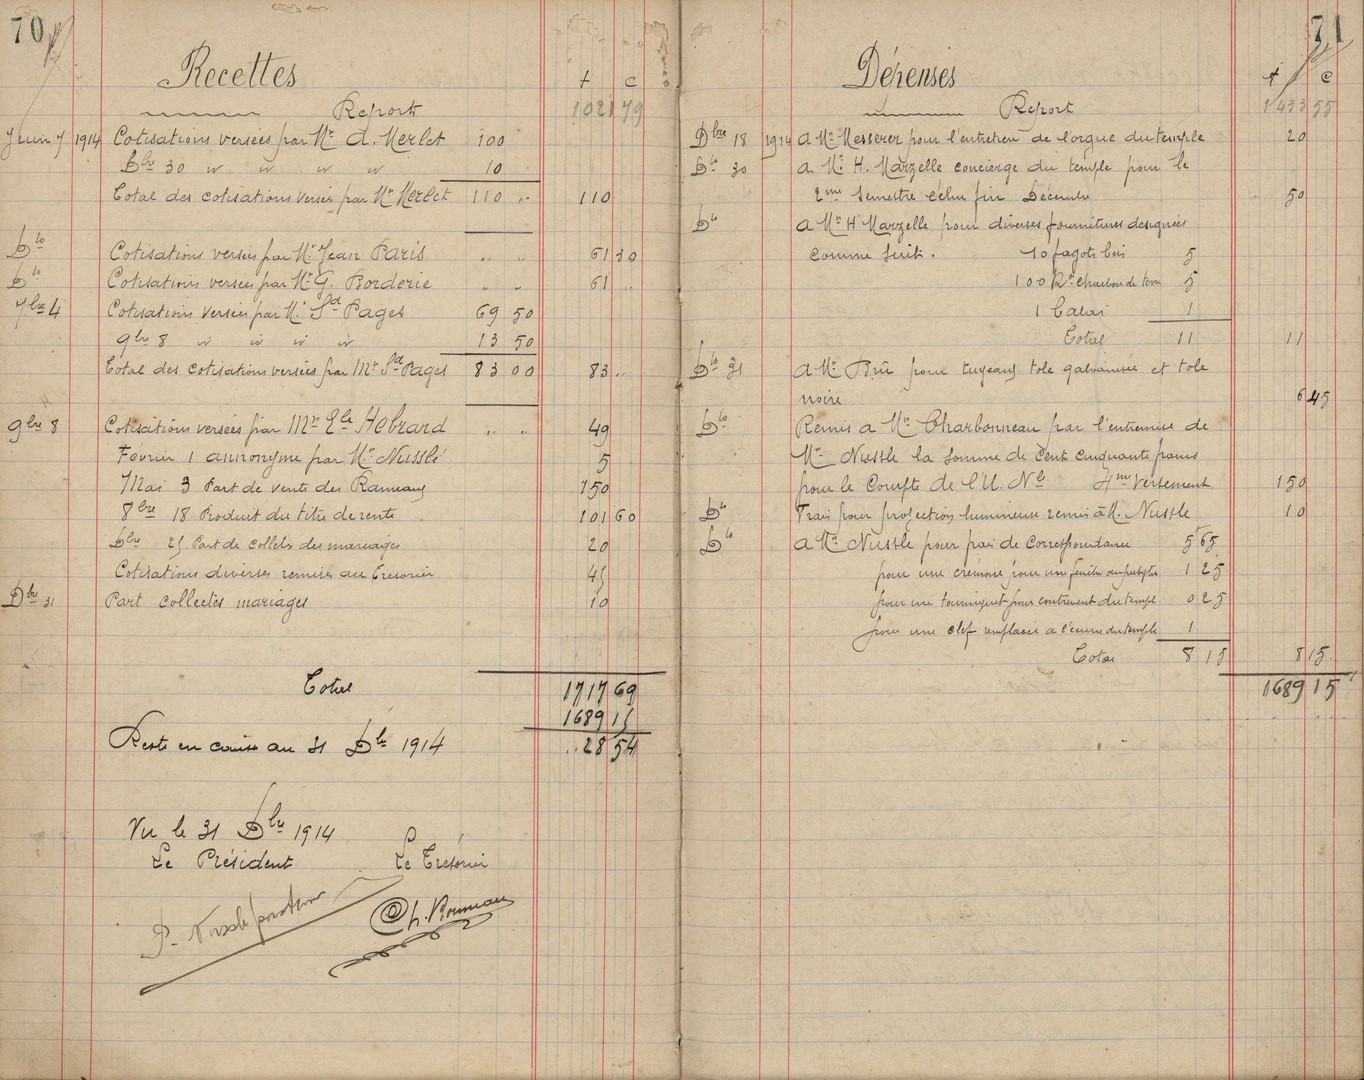 70
Recettes f c
Report 1021 79
Juin 7 1914 Cotisations versées par Mr A. Merlet 100
Dbre 30 " " " " 10
Total des cotisations versées par Mr Merlet 110 " 110
Dto Cotisations versées par Mr Jean Paris " " 61 30
Dto Cotisations versées par Mr G. Borderie " " 61 "
7bre 4 Cotisations versées par Mr Sd Pages 69 50
9bre 8 " " " " 13 50
Total des cotisations versées par Mr Sd Pages 83 00 83 "
9bre 8 Cotisations versées par Mr Ele Hebrard " " 49
Fevrier 1 annonyme par Mr Nusslé 5
Mai 3 Part de vente des Rameaux 150
8bre 18 Produit du titre de rente 101 60
Dbre 25 Part de collets des mariages 20
Cotisations diverses remises au Tresorier 45
Dbre 31 Part collectes mariages 10
Total 1717 69
1689 15
Reste en caisse au 31 Dbre 1914 .. 28 54
Vu le 31 Dbre 1914
Le Président Le Trésorier
P. Nussle pasteur Ch. Bonneau
71
Dépenses f c
Report 1433 55
Dbre 18 1914 a Mr Messerer pour l'entretien de l'orgue du temple 20
Dto 30 a Mr H. Marzelle concierge du temple pour le
2me Semestre echu fin Décembre 50
Dto a Mr H Marzelle pour diverses fournitures designées
comme suit. 10 fagots bois 5
100 Ko charbon de terre 5
1 Balai 1
Total 11 11
Dto 31 a Mr Brû pour tuyeaux tole galvanisée et tole
noire 6 45
Dto Remis a Mr Charbonneau par l'entremise de
Mr Nussle la somme de Cent cinquante francs
pour le Compte de l'U. Nle 4me Versement 150
Dto Frais pour projection lumineuse remis à M. Nussle 10
Dto a Mr Nussle pour frais de Correspondance 5f 65
pour une crémone pour une fenêtre du presbytre 1 25
pour un tourniquet pour contrevent du temple 0 25
pour une clef remplacée a l'ecurie du temple 1
Total 8 15 8 15
1689 15